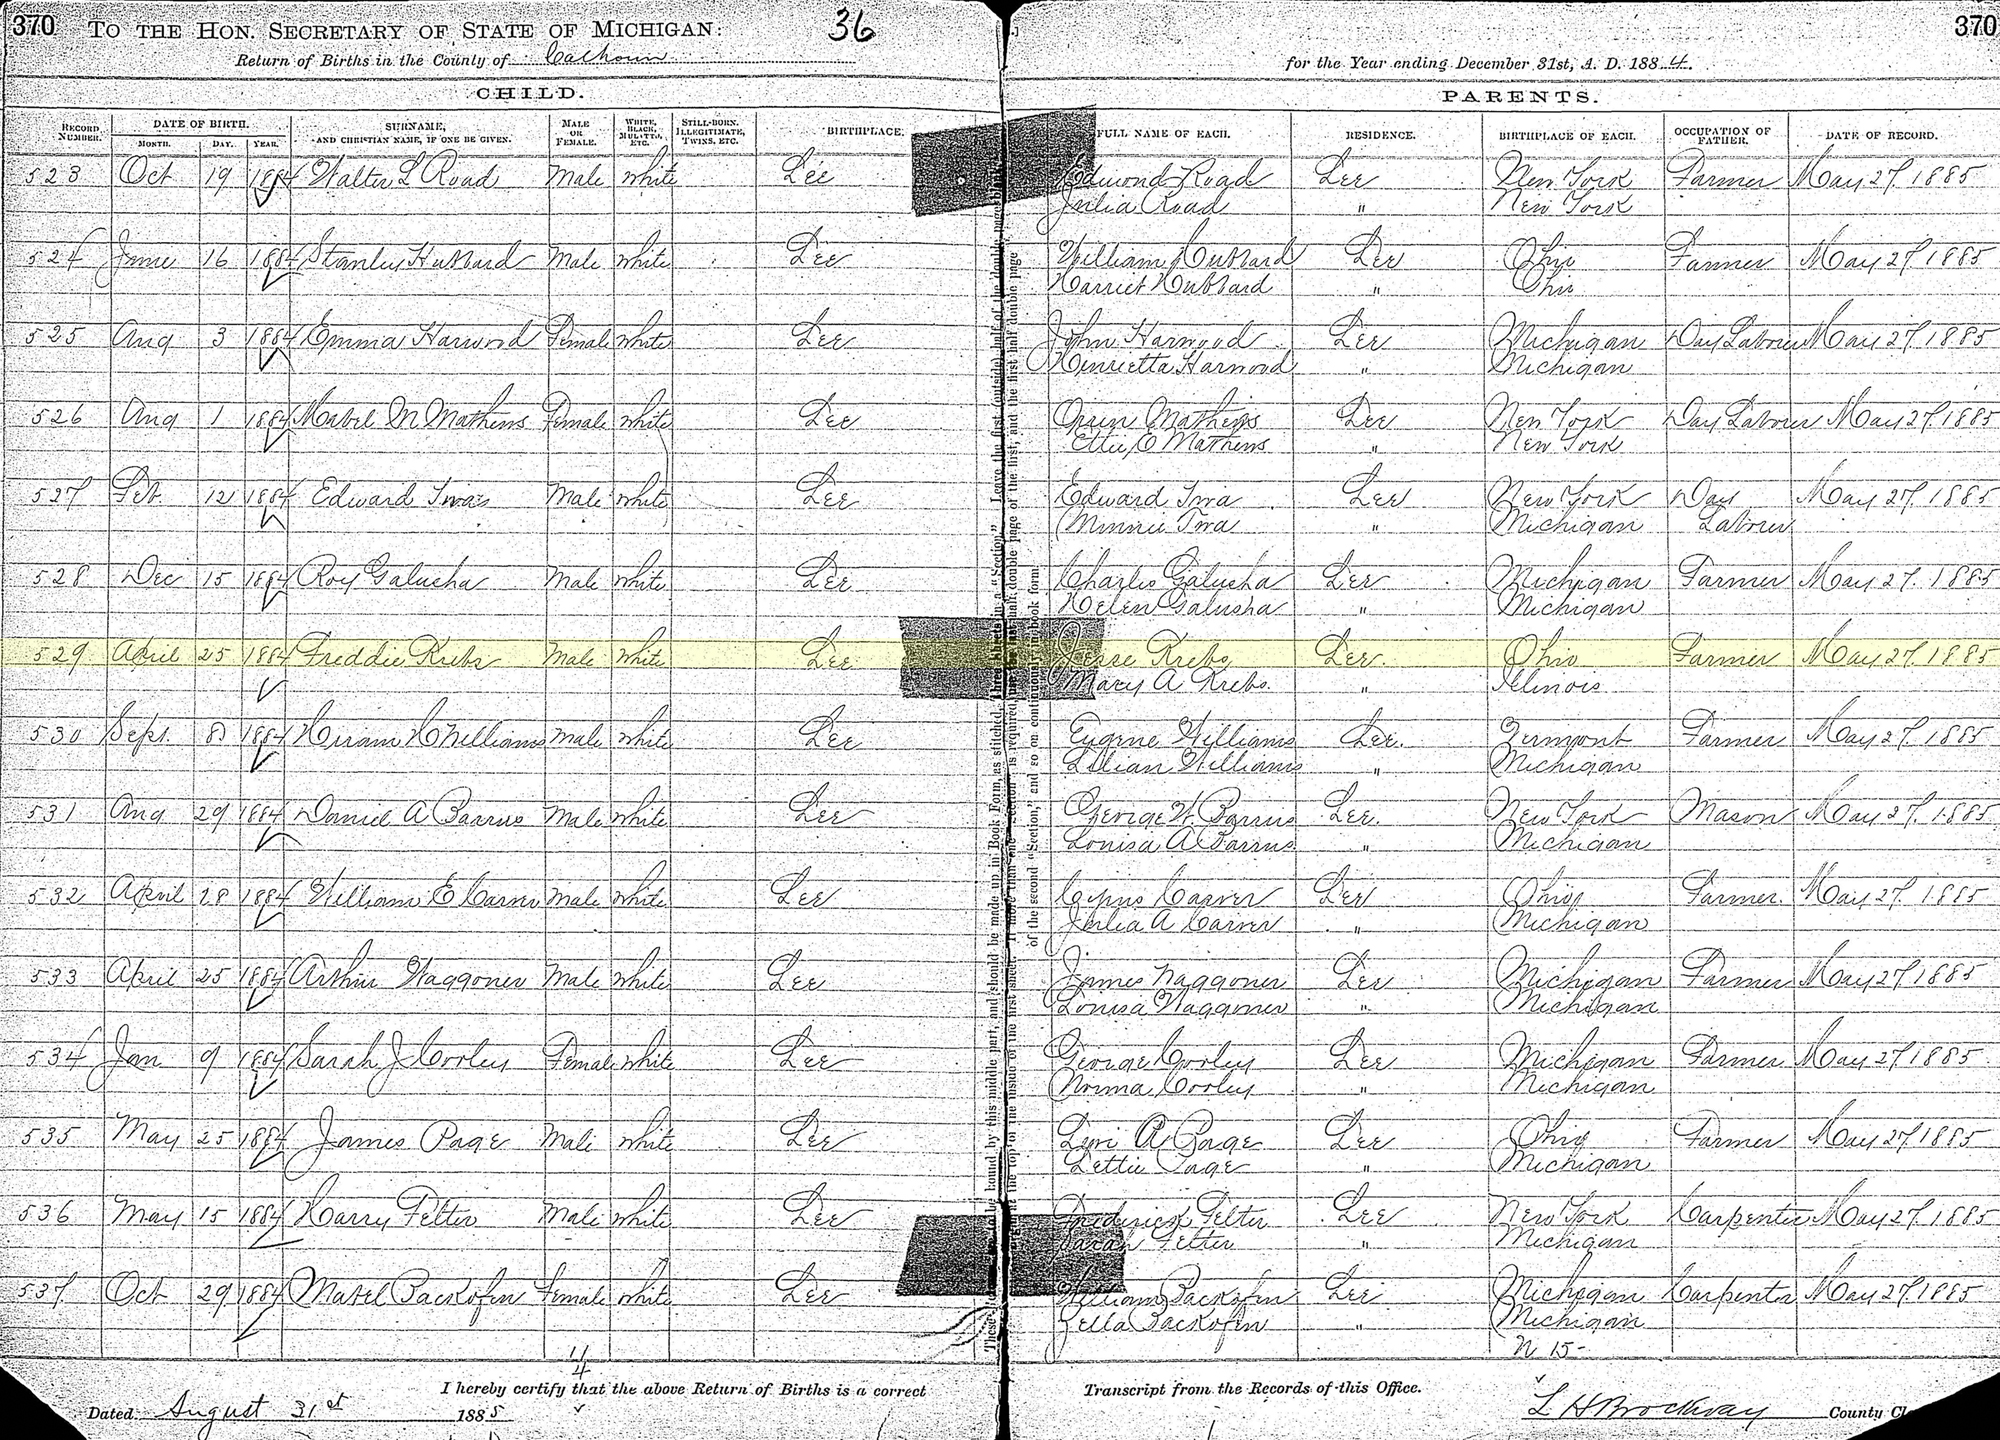 370 TO THE HON. SECRETARY OF STATE OF MICHIGAN: 36 370
Return of Births in the County of Calhoun for the Year ending December 31st, A. D. 1884.
CHILD. PARENTS.
RECORD NUMBER. DATE OF BIRTH. MONTH. DAY. YEAR. SURNAME, AND CHRISTIAN NAME, IF ONE BE GIVEN. MALE OR FEMALE. WHITE, BLACK, MULATTO, ETC. STILL-BORN, ILLEGITIMATE, TWINS, ETC. BIRTHPLACE. FULL NAME OF EACH. RESIDENCE. BIRTHPLACE OF EACH. OCCUPATION OF FATHER. DATE OF RECORD.
523 Oct 19 1884 Walter L Road Male white Lee Edmond Road Lee New York Farmer May 27 1885
Julia Road " New York
524 June 16 1884 Stanley Hubbard Male white Lee William Hubbard Lee Ohio Farmer May 27 1885
Harriet Hubbard " Ohio
525 Aug 3 1884 Emma Harwood Female white Lee John Harwood Lee Michigan Day Laborer May 27 1885
Henrietta Harwood " Michigan
526 Aug 1 1884 Mabel M Mathews Female white Lee Mathews Lee New York Day Laborer May 27 1885
Ettie E Mathews " New York
527 Feb. 12 1884 Edward Male white Lee Edward Iwa Lee New York Day May 27 1885
Minnie Iwa " Michigan Laborer
528 Dec 15 1884 Roy Galusha Male white Lee Charles Galusha Lee Michigan Farmer May 27. 1885
Helen Galusha " Michigan
529 April 25 1884 Freddie Krebs Male white Lee Jesse Krebs Lee. Ohio Farmer May 27. 1885
Mary A Krebs. " Illinois
530 Sept. 8 1884 Hiram H Williams Male white Lee Eugene Williams Lee. Vermont Farmer May 27. 1885
Lilian Williams " Michigan
531 Aug 29 1884 Daniel A Barrus Male white Lee George W Barrus Lee. New York Mason May 27. 1885
Louisa A Barrus " Michigan
532 April 28 1884 William E Carver Male white Lee Cyrus Carver Lee Ohio Farmer. May 27. 1885
Julia A Carver " Michigan
533 April 25 1884 Arthur Waggoner Male white Lee James Waggoner Lee Michigan Farmer May 27 1885
Louisa Waggoner " Michigan
534 Jan 9 1884 Sarah J Cooley Female white Lee George Cooley Lee Michigan Farmer May 27 1885
Norma Cooley " Michigan
535 May 25 1884 James Page Male white Lee Levi A Page Lee Ohio Farmer May 27. 1885
Lettie Page " Michigan
536 May 15 1884 Harry Felter Male white Lee Frederick Felter Lee New York Carpenter May 27. 1885
Sarah Felter " Michigan
537 Oct 29 1884 Mabel Backofen Female white Lee William Backofen Lee Michigan Carpenter May 27 1885
Zella Backofen " Michigan
N 15-
I hereby certify that the above Return of Births is a correct Transcript from the Records of this Office.
Dated August 31st 1885 L H Brockway County